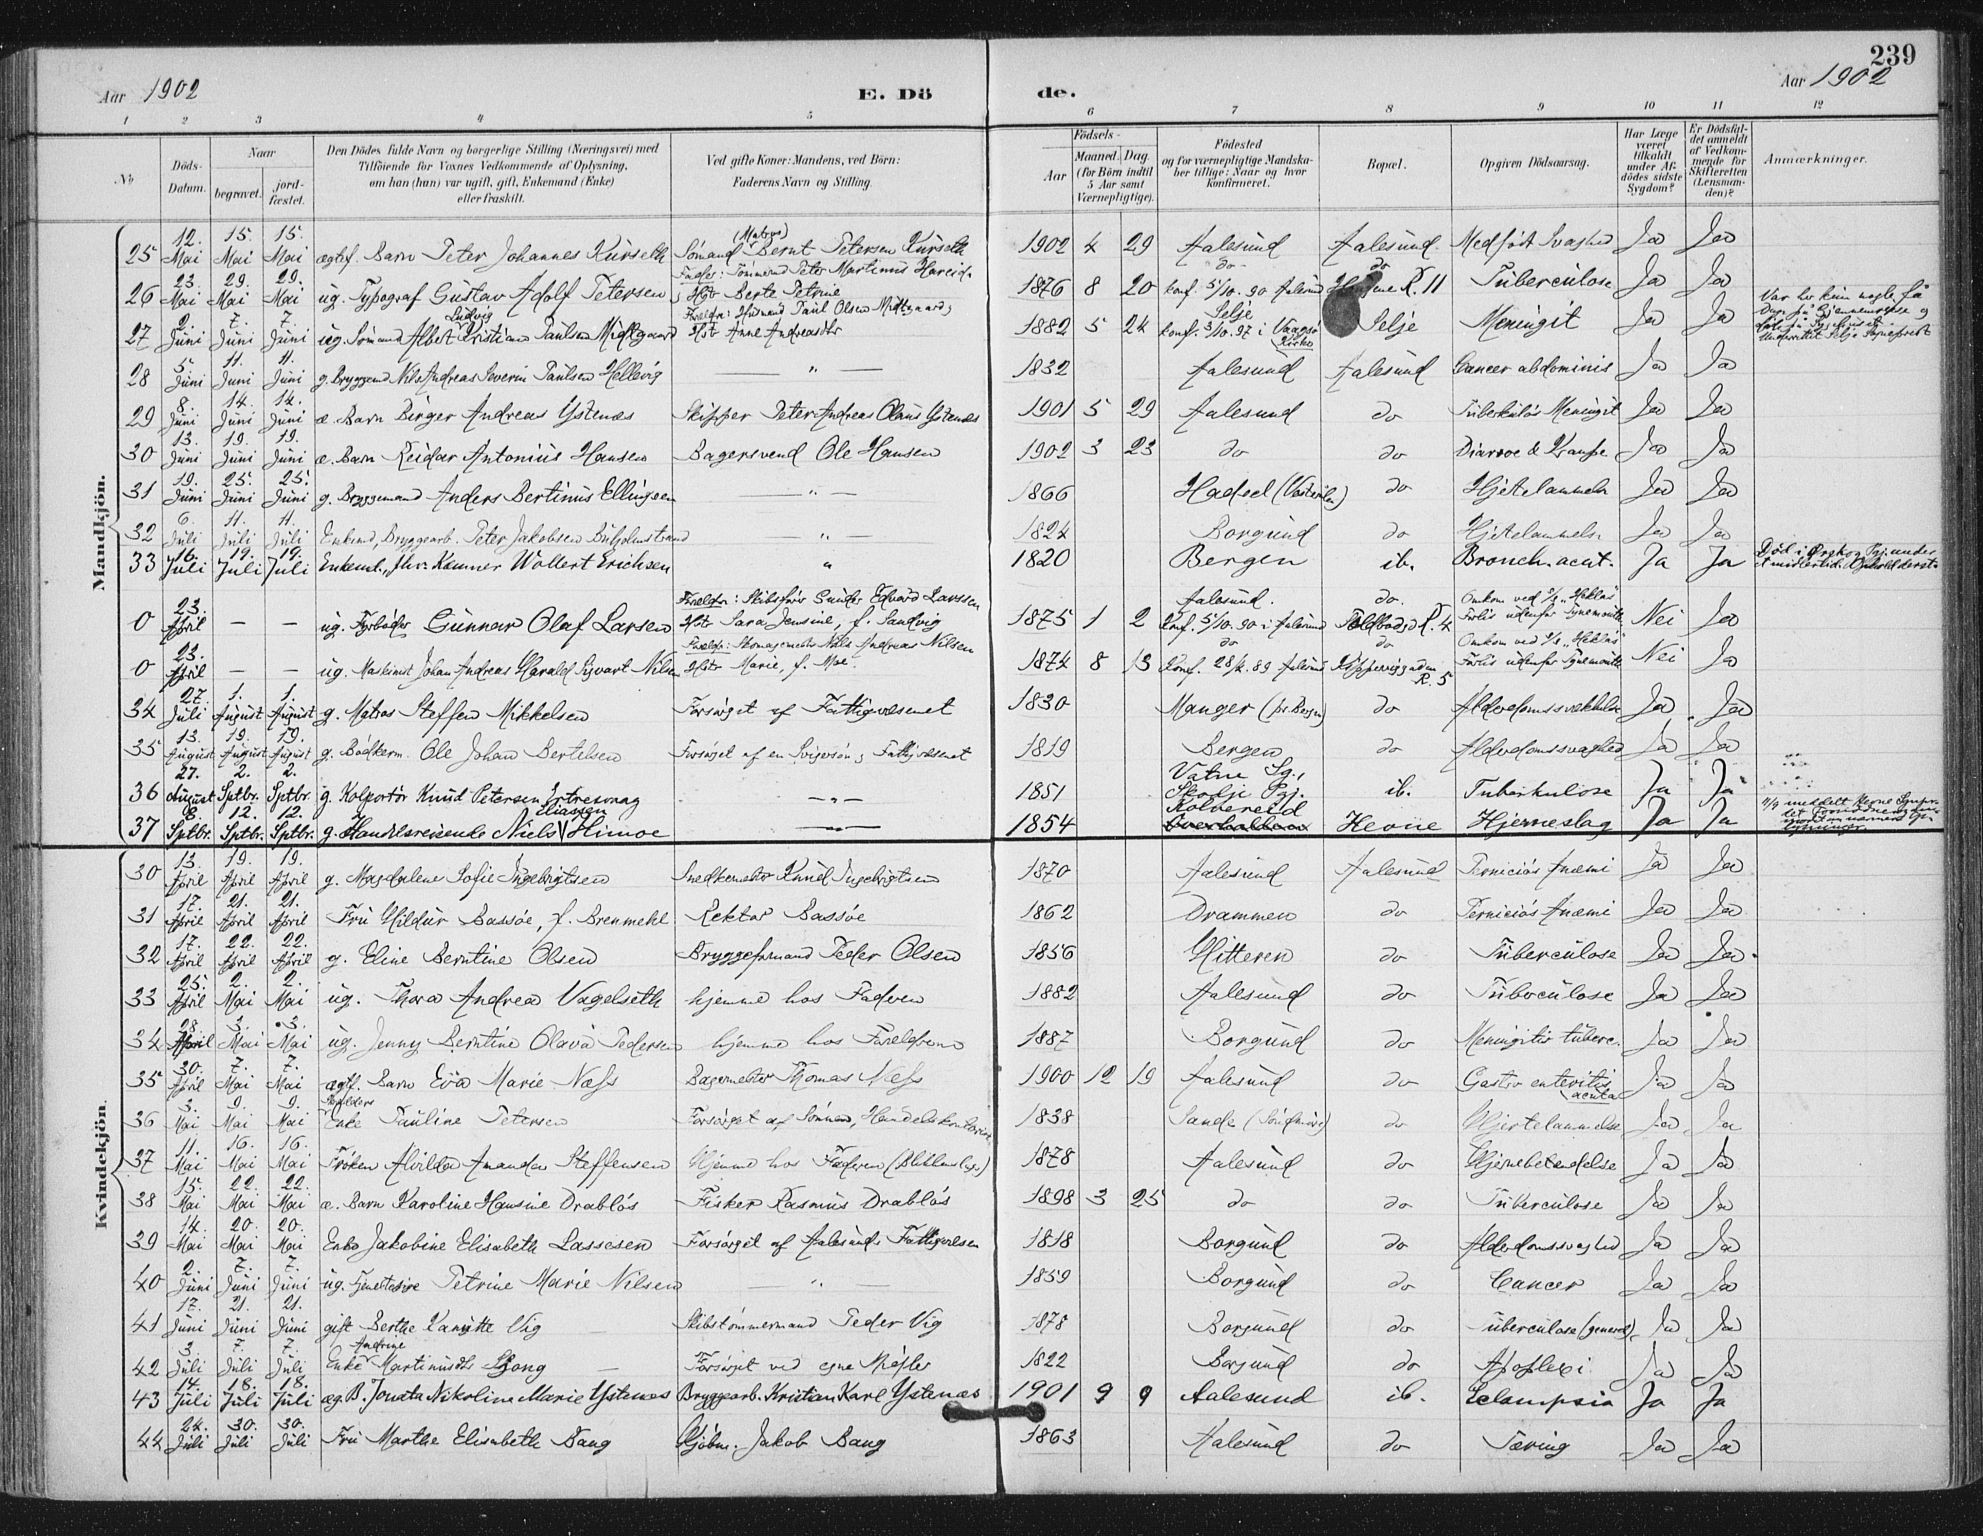 239
Aar 1902 E. Dö de. Aar 1902
1 2 3 4 5 6 7 8 9 10 11 12
No Döds-Datum. Naar begravet. jord-fæstet. Den Dödes fulde Navn og borgerlige Stilling (Næringsvei) med Tilföiende for Voxnes Vedkommende af Oplysning, om han (hun) var ugift, gift, Enkemand (Enke) eller fraskilt. Ved gifte Koner: Mandens, ved Börn: Faderens Navn og Stilling. Födsels- Aar Maaned. Dag. (for Börn indtil 5 Aar samt Værnepligtige). Födested og for værnepligtige Mandska-ber tillige: Naar og hvor konfirmeret. Bopæl. Opgiven Dödsaarsag. Har Læge været tilkaldt under Af-dödes sidste Sygdom? Er Dödsfal-det anmeldt af Vedkom-mende for Skifteretten (Lensman-den)? Anmærkninger.
Mandkjön.
25 12. Mai 15. Mai 15. Mai ægtef. Barn Peter Johannes Kurseth Sömand (Matros) Bernt Petersen Kurseth 1902 4 29 Aalesund Aalesund Medfödt Svaghed Ja Ja
26 23. Mai 29. Mai 29. Mai ug. Typograf Gustav Adolf Petersen Peter Martinus Hareid Hstr Berte Petrine 1876 8 20 do Konf. 5/10. 90 Aalesund do R. 11 Tuberculose Ja Ja
27 2. Juni 7. Juni 7. Juni ug. Sömand Albert Ludvig Kristian Paulsen Midtgaard Forældre: Husmand Paul Olsen Midtgaard, Hstr Anne Andreasdtr 1882 5 24 Selje konf. 3/10. 97 i Vaagsö Kirke Selje Meningit Ja Ja
28 5. Juni 11. Juni 11. Juni g. Bryggemd Nils Andreas Severin Paulsen Hellevig — " — 1832 Aalesund Aalesund Cancer abdominis Ja Ja
29 8. Juni 14. Juni 14. Juni æ. Barn Birger Andreas Ystenæs Skipper Peter Andreas Olaus Ystenæs 1901 5 29 Aalesund do Tuberkulös Meningit Ja Ja
30 13. Juni 19. Juni 19. Juni æ. Barn Reidar Antonius Hansen Bagersvend Ole Hansen 1902 3 23 do do Diarroe & Krampe Ja Ja
31 19. Juni 25. Juni 25. Juni g. Bryggemand Anders Bertinus Ellingsen — " — 1866 Hadsel (Vesterålen) do Hjertelammelse Ja Ja
32 6. Juli 11. Juli 11. Juli Enkemd, Bryggearb. Peter Jakobsen Buholmstrand — " — 1824 Borgund do Hjertelammelse Ja Ja
33 16. Juli 19. Juli 19. Juli Enkemd., Kæmner Wollert Erichsen " 1820 Bergen ib. Bronch. acut. Ja Ja
0 23. April — — ug. Fyrböder Gunnar Olaf Larsen Forældre: Edvard Larssen Hstr Sara Jensine, f. Sandvig 1875 1 2 Aalesund. Konf. 5/10. 90 i Aalesund do. R. 4 Omkom ved S/S „Heklas" Forlis udenfor Tynemouth Nei Ja
0 23. April — — ug. Maskinist Johan Andreas Harald Sigvart Nilsen Forældre: Skomagermester Nils Andreas Nilsen Hstr Marie, f. Moe 1874 8 13 do Konf. 28/4. 89 Aalesund do R. 5 Omkom ved S/S „Heklas" Forlis udenfor Tynemouth Nei Ja
34 27. Juli 1. August 1. August g. Matros Steffen Mikkelsen Forsörget af Fattigvæsenet 1830 Manger (pr. Bergen) do Alderdomssvækkelse Ja Ja
35 13. August 19. August 19. August g. Bödkerm. Ole Johan Bertelsen Forsörget af en Svigersön; Fattigvæsenet 1819 Bergen do Alderdomssvaghed Ja Ja
36 27. August 2. Sptbr. 2. Sptbr. g. Kolportör Knud Petersen — " — 1851 Vatne Sg., Skodje Pgj. ib. Tuberkulose Ja Ja
37 8. Sptbr. 12. Sptbr. 12. Sptbr. g. Handelsreisende Niels Eliassen Himoe — " — 1854 Kolvereid Overhallen Hevne Hjerneslag Ja Ja
Kvindekjön.
30 13. April 19. April 19. April g. Magdalene Sofie Ingebrigtsen Snedkermester Knud Ingebrigtsen 1870 Aalesund Aalesund Perniciös Anæmi Ja Ja
31 17. April 21. April 21. April Fru Hildur Bassöe, f. Brenmehl. Rektor Bassöe 1862 Drammen do Perniciös Anæmi Ja Ja
32 17. April 22. April 22. April g. Eline Berntine Olsen Bryggeformand Peder Olsen 1856 Hitteren do Tuberculose Ja Ja
33 25. April 2. Mai 2. Mai ug. Thora Andrea Vegelseth hjemme hos Faderen 1882 Aalesund do Tuberculose Ja Ja
34 28. April 3. Mai 3. Mai ug. Jenny Berntine Olava Pedersen hjemme hos Forældrene 1887 Borgund do Meningitis tuberc. Ja Ja
35 30. April 7. Mai 7. Mai ægtf. Barn Eva Marie Næss Bagermester Thomas Næss 1900 12 19 Aalesund do Gastro enteritis acuta Ja Ja
36 3. Mai 9. Mai 9. Mai Enke Pauline Petersen Forsörget af Sönnen, 1838 Sande (Söndmöre) do Hjertelammelse Ja Ja
37 11. Mai 16. Mai 16. Mai Fröken Alvilda Amanda Steffensen Hjemme hos Faderen 1878 Aalesund do Hjernebetændelse Ja Ja
38 15. Mai 22. Mai 22. Mai æ. Barn Karoline Hansine Drablös Fisker Rasmus Drablös 1898 3 25 do do Tuberculose Ja Ja
39 14. Mai 20. Mai 20. Mai Enke Jakobine Elisabeth Lassesen Forsörget af Aalesunds Fattigvæsen 1818 Borgund do Alderdomssvaghed Ja Ja
40 2. Juni 7. Juni 7. Juni ug. Petrine Marie Nilsen — " — 1859 Borgund do Cancer Ja Ja
41 17. Juni 21. Juni 21. Juni gift Berthe Vig Skibstömmermand Peder Vig 1878 Borgund do Tuberculose (general) Ja Ja
42 3. Juli 7. Juli 7. Juli Enke Andrine Martinusdtr Sjong — Forsörget ved egne Midler 1822 Borgund do Apoplexi Ja Ja
43 14. Juli 18. Juli 18. Juli æg. B. Jonata Nikoline Marie Ystenæs Bryggearb. Kristian Karl Ystenæs 1901 9 9 Aalesund ib. Eclampsia Ja Ja
44 24. Juli 30. Juli 30. Juli Fru Marthe Elisabeth Bang Kjöbm. Jakob Bang 1863 Aalesund do Tæring Ja Ja